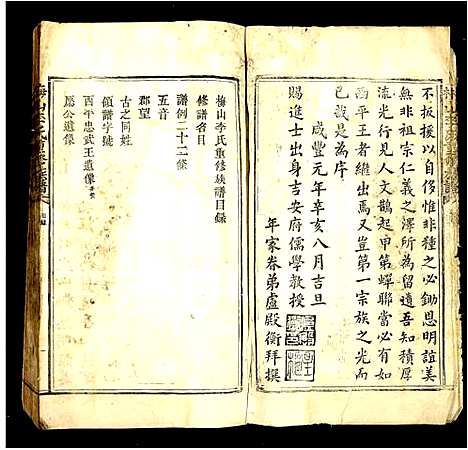 不扳援以自侈惟非種之必鋤恩明誼美
無非祖宗仁義之澤所為留遺吾知積厚
流光行見人文鵲起甲第蟬聯當必有如
西平王者繼出焉又豈第一宗族之光而
已哉是為序
咸豐元年辛亥八月吉旦
賜進士出身吉安府儒學教授
年家眷弟盧殿衡拜撰
梅山李氏重修族譜目錄
修譜名目
譜例二十二條
五音
郡望
古之同姓
領譜字號
西平忠武王遺像
公遺像